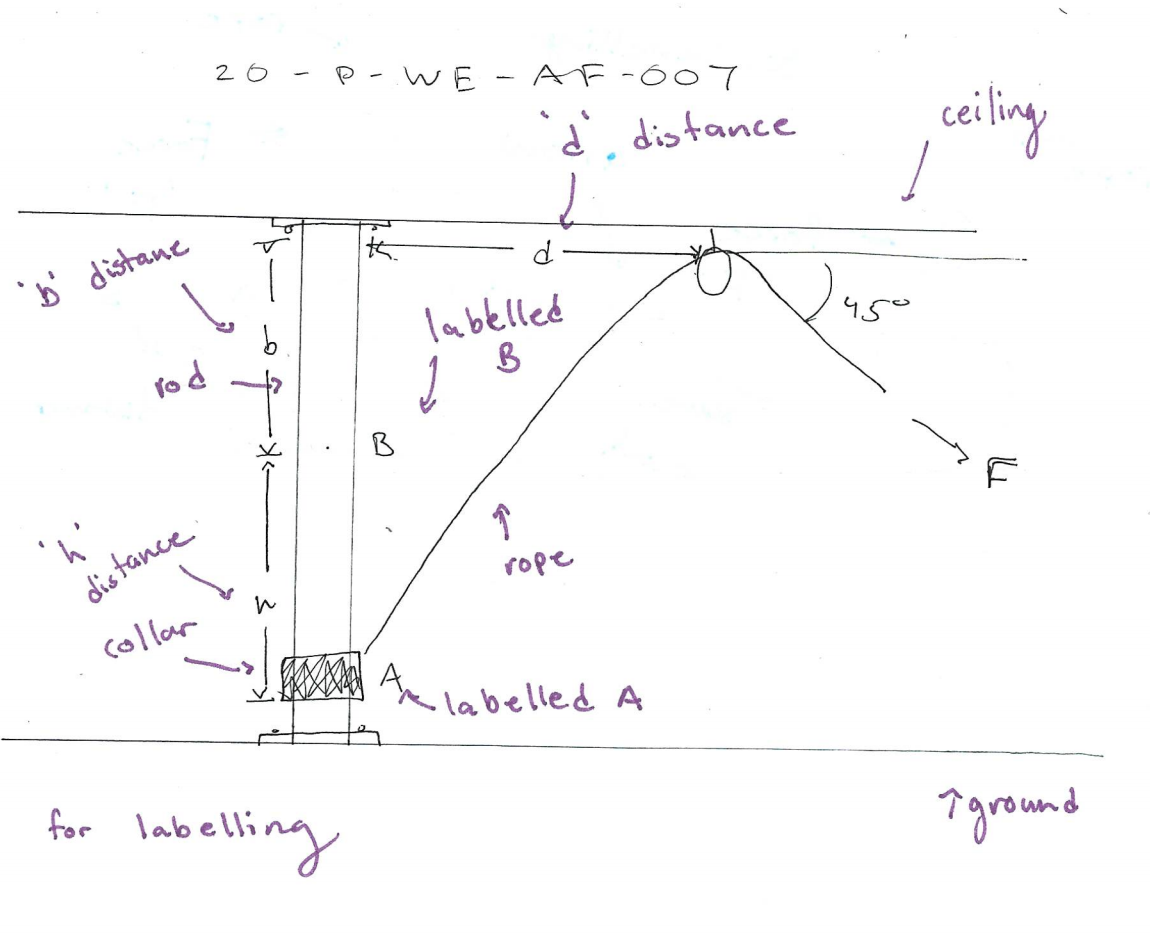 20 - P - WE - AF - 007
'd' distance
ceiling
d
'b' distane
45°
labelled
B
b
rod
B
F
'h'
distance
rope
h
collar
A
labelled A
ground
for labelling